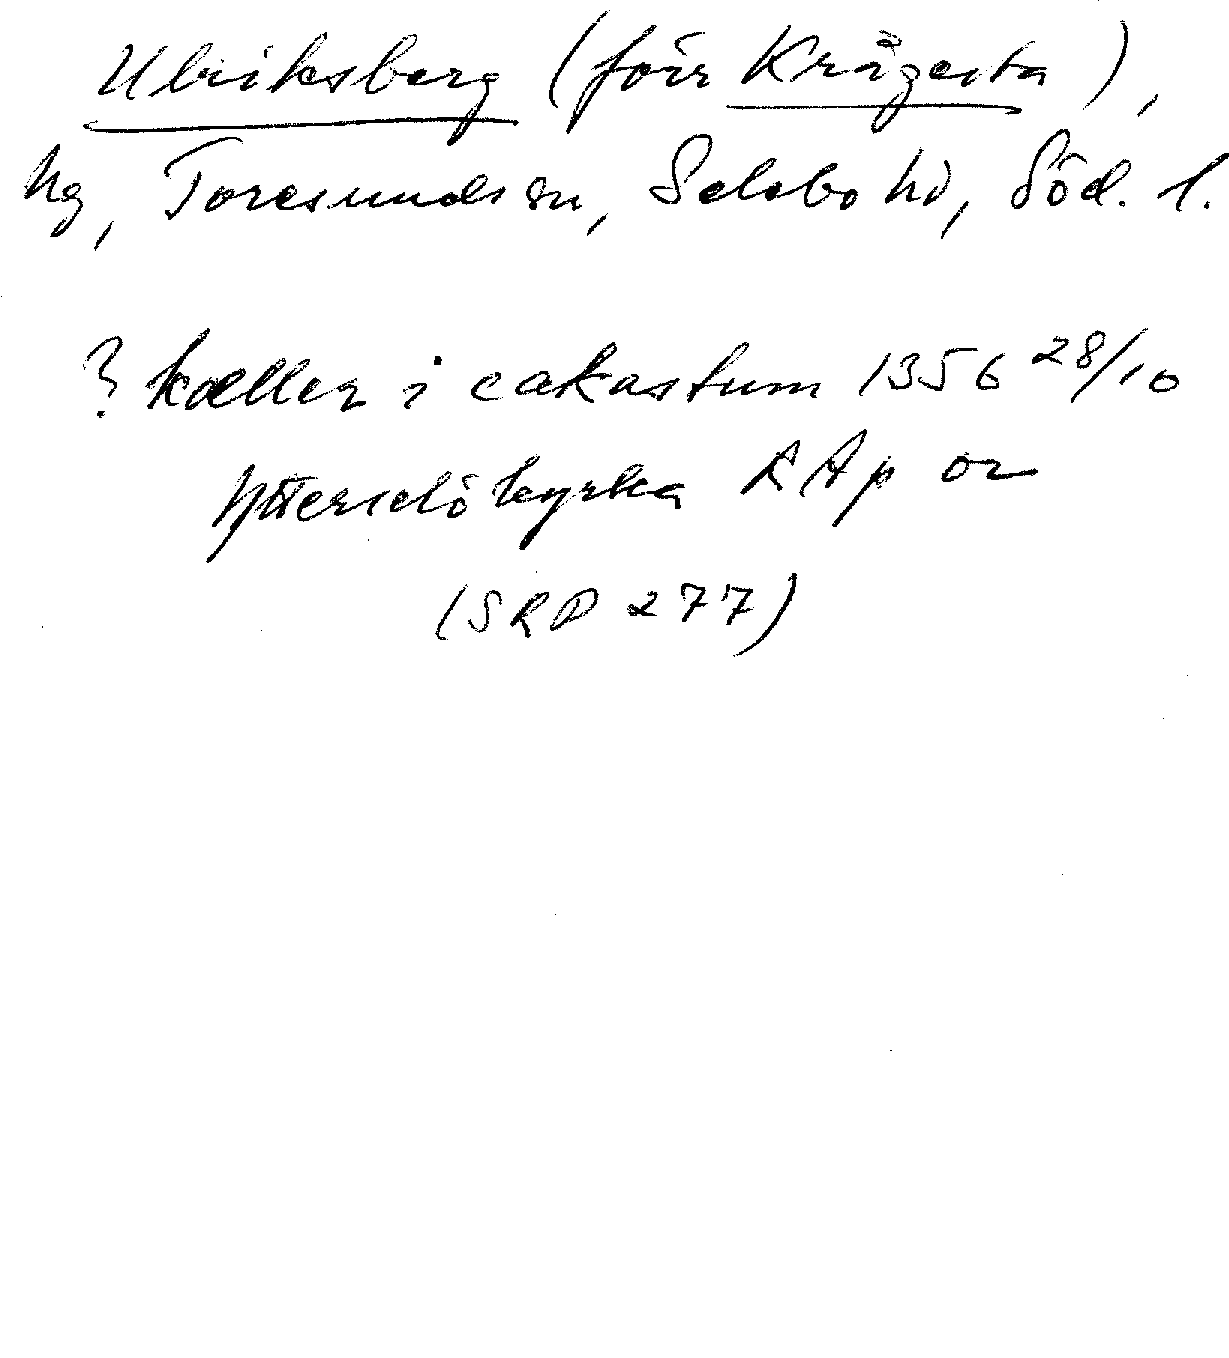 Ulriksberg (förr Krågesta),
hg, Toresunds sn, Selebo hd, Söd. l.
? kæller i cakastum 1356 28/10
Ytterselö kyrka RAp or
(SRP 277)